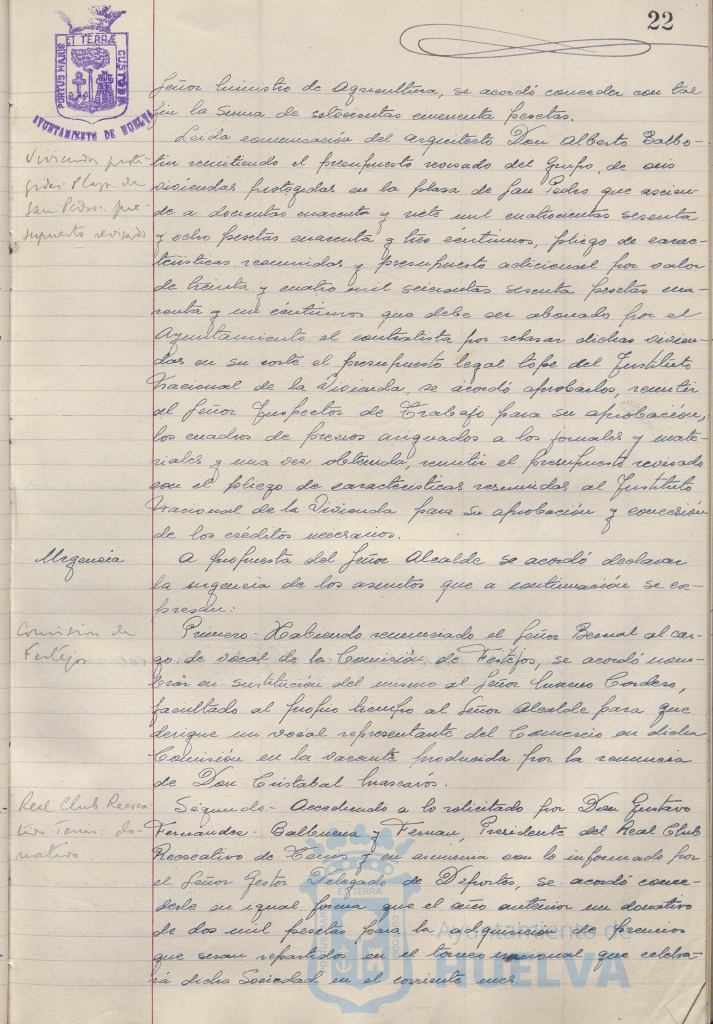 22
PORTUS MARIS ET TERRÆ CUSTODIA
AYUNTAMIENTO DE HUELVA
Señor ministro de Agricultura, se acordó conceder con tal
fin la suma de setecientas cincuenta pesetas.
Viviendas prote-
gidas: Plaza de
San Pedro: pre-
supuesto revisado
Leida comunicación del arquitecto Don Alberto Balbo-
tin remitiendo el presupuesto revisado del Grupo de seis
viviendas protegidas en la plaza de San Pedro que ascien-
de a doscientas cuarenta y siete mil cuatrocientas sesenta
y ocho pesetas cuarenta y tres céntimos, pliego de carac-
terísticas resumidas y presupuesto adicional por valor
de treinta y cuatro mil seiscientas sesenta pesetas cua-
renta y un céntimos que debe ser abonado por el
Ayuntamiento al contratista por rebasar dichas vivien-
das en su coste el presupuesto legal tope del Instituto
Nacional de la Vivienda, se acordó aprobarlos, remitir
al Señor Inspector de Trabajo para su aprobación,
los cuadros de precios asignados a los jornales y mate-
riales y una vez obtenida, remitir el presupuesto revisado
con el pliego de características resumidas al Instituto
Nacional de la Vivienda para su aprobación y concesión
de los créditos necesarios.
Urgencia
A propuesta del Señor Alcalde se acordó declarar
la urgencia de los asuntos que a continuación se ex-
presan:
Comision de
Festejos
Primero - Habiendo renunciado el Señor Bernal al car-
go de vocal de la Comisión de Festejos, se acordó nom-
brar en sustitución del mismo al Señor Cordero,
facultado al propio tiempo al Señor Alcalde para que
designe un vocal representante del Comercio en dicha
Comisión en la vacante producida por la renuncia
de Don Cristobal
Real Club Recrea-
tivo Tenis: do-
nativo
Segundo - Accediendo a lo solicitado por Don Gustavo
Fernández - Balbuena y Presidente del Real Club
Recreativo de Tenis y en armonía con lo informado por
el Señor Gestor Delegado de Deportes, se acordó conce-
derle en igual forma que el año anterior un donativo
de dos mil pesetas para la adquisición de premios
que seran repartidos en el torneo nacional que celebra-
rá dicha Sociedad en el corriente mes.
Ayuntamiento de
HUELVA